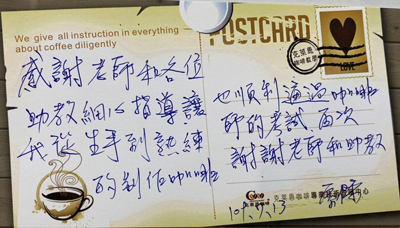 We give all instruction in everything
about coffee diligently
POSTCARD
LOVE
感謝老師和各位
助教細心指導讓
我從生手到熟練
的制作咖啡
也順利通過咖啡
師的考試再次
謝謝老師和助教